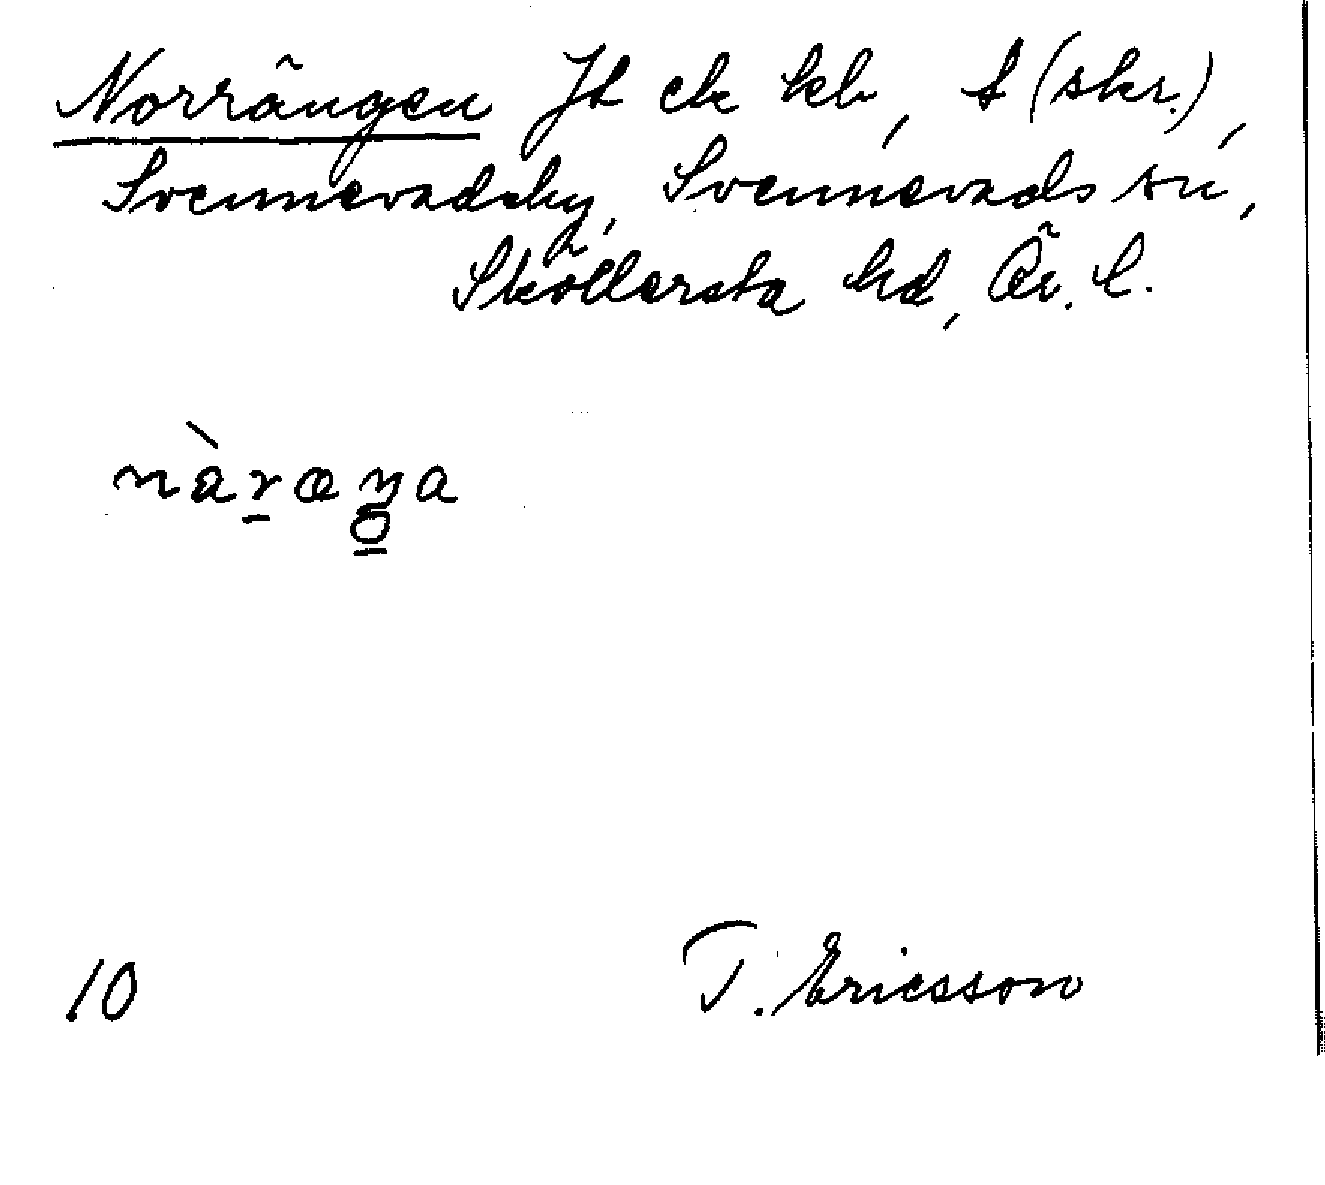 Norrängen Jb ek kb, A (skr.),
Svennevadsby, Svennevads sn,
Sköllersta hd, Ör. l.
10
T. Ericsson